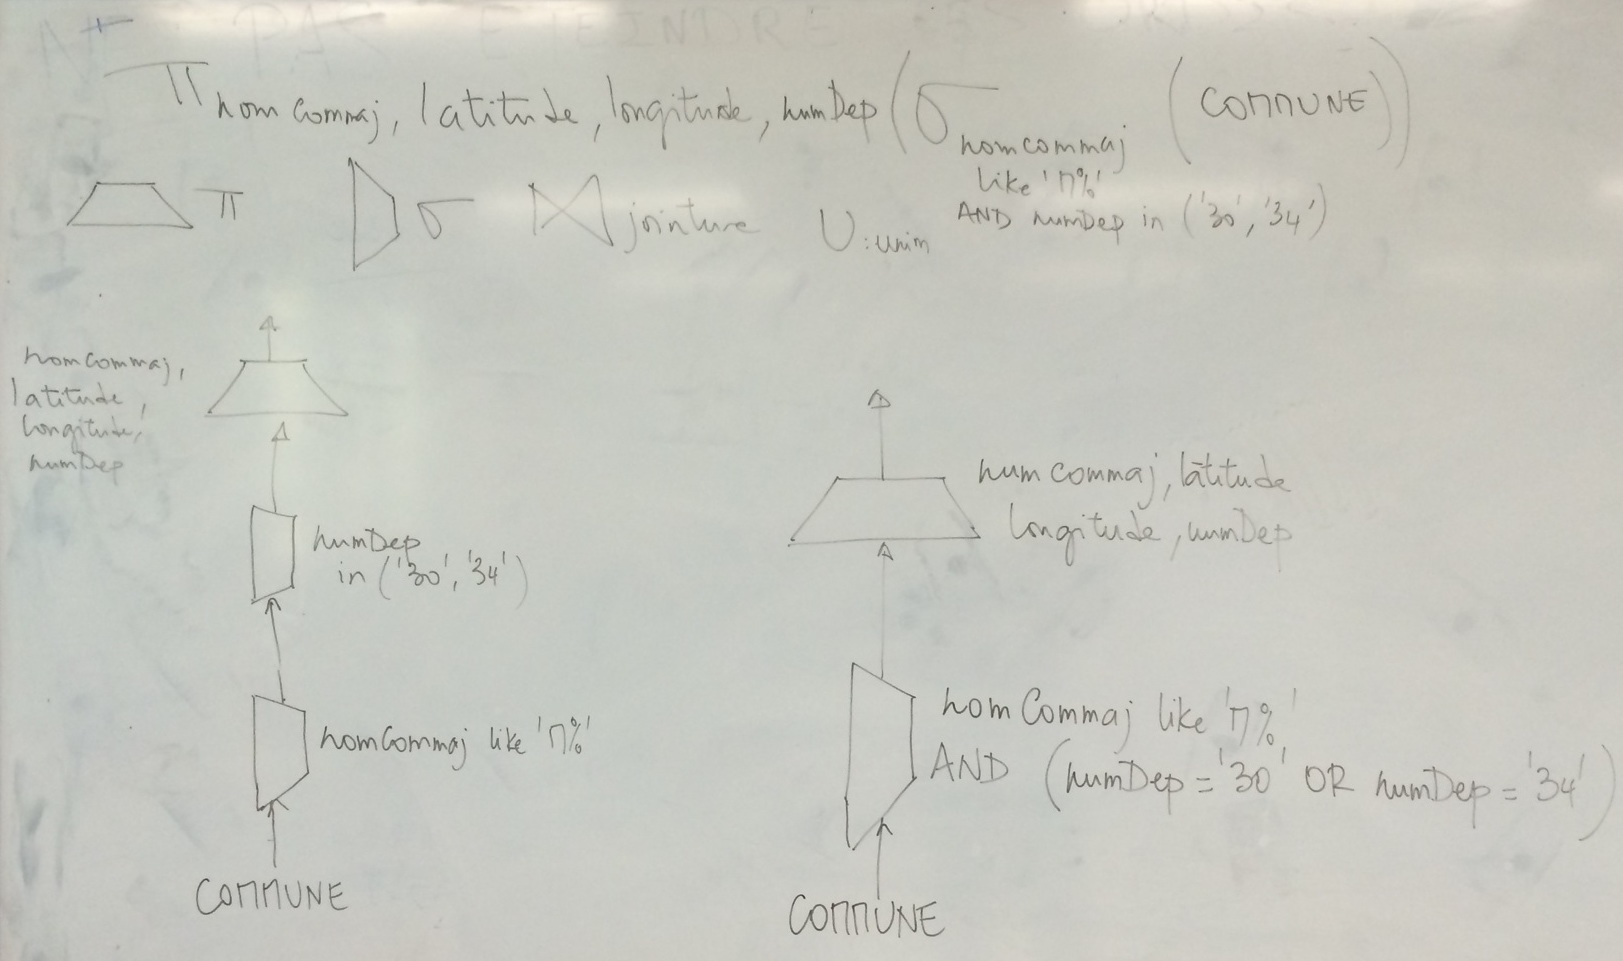 NE PAS ETEINDRE
π nomCommaj, latitude, longitude, numDep (σ nomcommaj like 'M%' AND numDep in ('30', '34') (COMMUNE))
π σ ⋈ jointure ∪ : union
nomCommaj,
latitude,
longitude,
numDep
numDep
in ('30', '34')
nomCommaj like 'M%'
COMMUNE
numcommaj, latitude
longitude, numDep
nomCommaj like 'M%'
AND (numDep = '30' OR numDep = '34')
COMMUNE